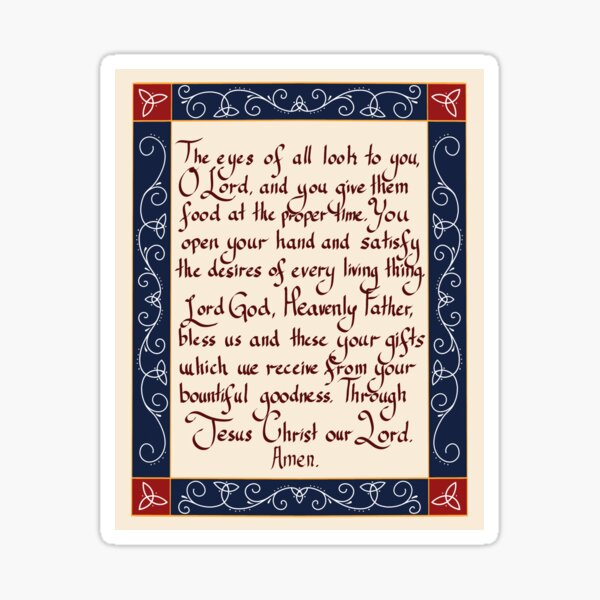 The eyes of all look to you,
O Lord, and you give them
food at the proper time. You
open your hand and satisfy
the desires of every living thing.
Lord God, Heavenly Father,
bless us and these your gifts
which we receive from your
bountiful goodness. Through
Jesus Christ our Lord.
Amen.